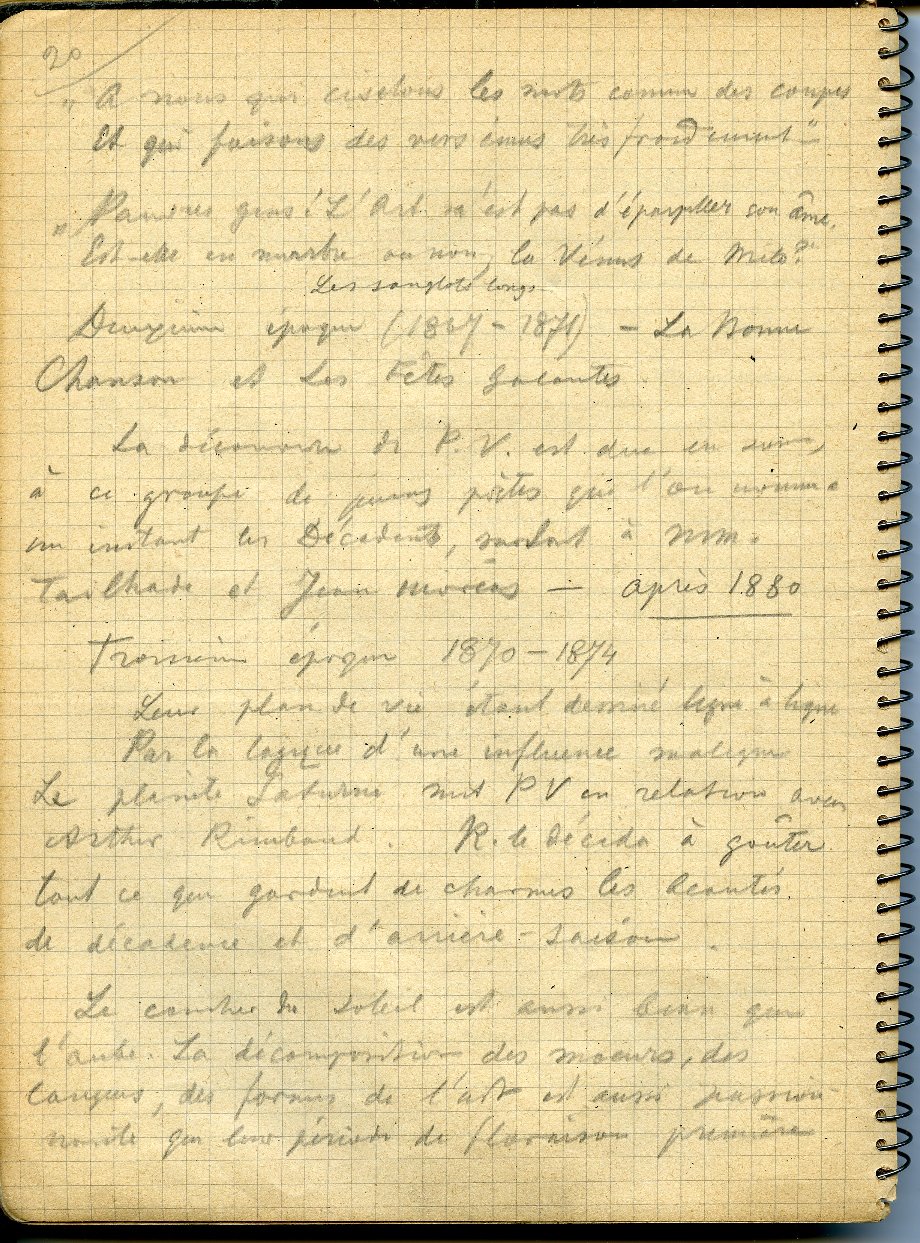 20
" A nous qui ciselons les mots comme des coupes
Et qui faisons des vers émus très froidement "
" Pauvres gens! L'Art n'est pas d'éparpiller son âme.
Est-elle en marbre ou non, la Vénus de Milo?"
Les sanglots longs
Deuxième époque (1867 - 1871) - La Bonne
Chanson et Les Fêtes galantes.
La découverte de P.V. est due en somme,
à ce groupe de jeunes poètes que l'on nomma
un instant les Décadents, surtout à MM.
Tailhade et Jean Moréas — après 1880
Troisième époque 1870 - 1874
Leur plan de vie étant dessiné ligne à ligne
Par la logique d'une influence maligne
Le planète Saturne mit PV en relation avec
Arthur Rimbaud. R. le décida à goûter
tout ce que gardent de charmes les beautés
de décadence et d'arrière-saison.
Le coucher du soleil est aussi beau que
l'aube. La décomposition des moeurs, des
langues, des formes de l'art est aussi passion-
nante que leur période de floraison première